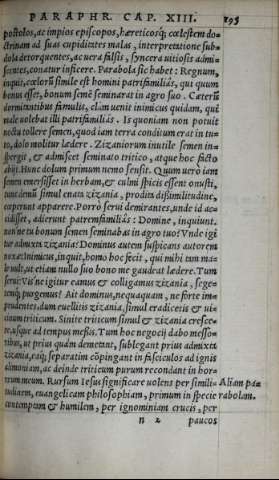 PARAPHR. CAP. XIII. 195
postolos, ac impios episcopos, hæreticosq; cœlestem do-
ctrinam ad suas cupiditates malas, interpretatione sub-
dola detorquentes, ac uera falsis, syncera uitiosis admi-
scentes, conatur inficere. Parabola sic habet: Regnum,
inquit, cœlorũ simile est homini patrifamiliâs, qui quum
bonus esset, bonum semẽ seminarat in agro suo. Cæterũ
dormientibus famulis, clàm uenit inimicus quidam, qui
male uolebat illi patrifamiliâs. Is quoniam non potuit
tollere semen, quod iam terra conditum erat in tu-
to, dolo molitur lædere. Zizaniorum inutile semen in-
spergit, & admiscet seminato tritico, atque hoc facto
abijt. Hunc dolum primum nemo sensit. Quum uerò iam
semen emersisset in herbam, & culmi spicis essent onusti,
tunc demũ simul enata zizania, prodita dissimilitudine,
cœperunt apparere. Porrò serui demirantes, unde id ac-
cidisset, adierunt patremfamiliâs: Domine, inquiunt,
non ne tu bonum semen seminabas in agro tuo? Vnde igi
tur admixta zizania? Dominus autem suspicans autorem
noxæ: Inimicus, inquit, homo hoc fecit, qui mihi tam ma-
le uult, ut etiam nullo suo bono me gaudeat lædere. Tum
serui: Vis ne igitur eamus & colligamus zizania, sege-
temq; purgemus? Ait dominus, nequaquam, ne forte im-
prudentes, dum euellitis zizania, simul eradicetis & ui-
cinum triticum. Sinite triticum simul & zizania cresce-
re, usque ad tempus messis. Tum hoc negocij dabo messori
bus, ut prius quàm demetant, sublegant prius admixta
zizania, eaq; separatim cõpingant in fasciculos ad ignis
alimoniam, ac deinde triticum purum recondant in hor-
reum meum. Rursum Iesus significare uolens per simili- Aliam pa-
tudinem, euangelicam philosophiam, primum in specie rabolam.
contemptam & humilem, per ignominiam crucis, per
n 2 paucos